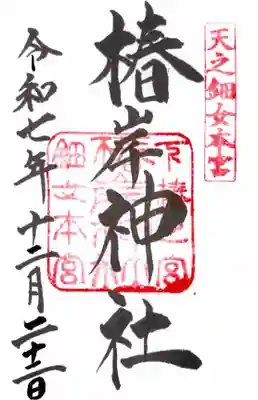 天之鈿女本宮
椿岸神社
鈿女本宮
令和七年十二月二十二日